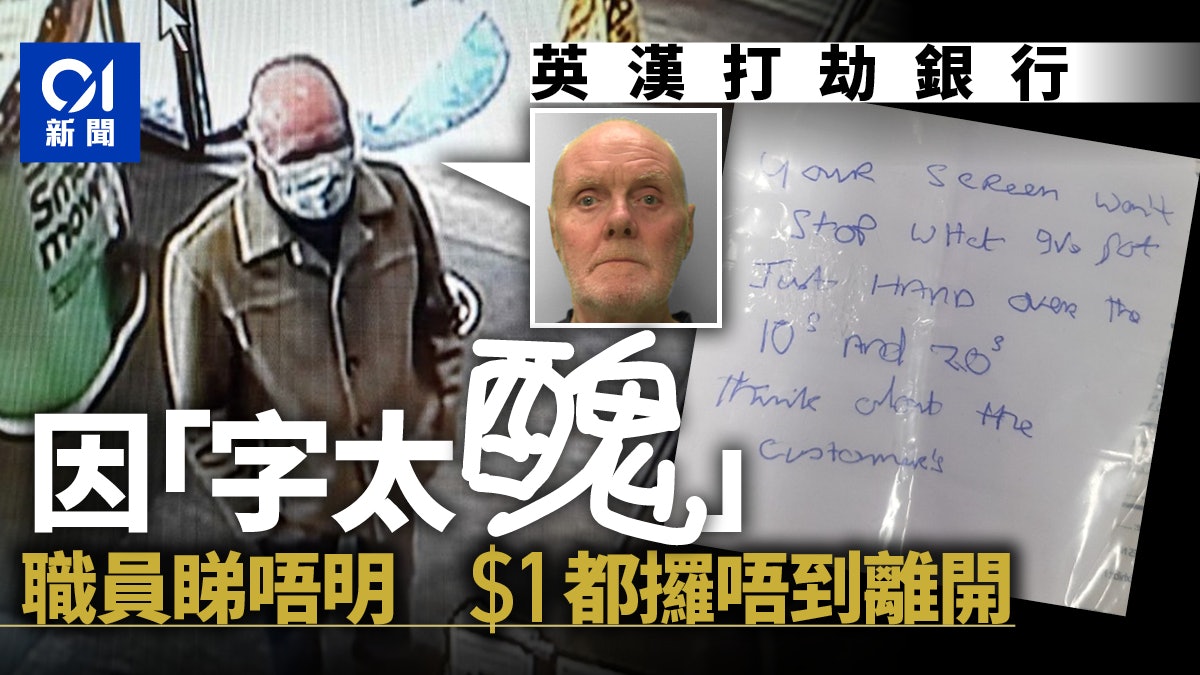 01
新聞
英漢打劫銀行
Smo
mov
your screen won't
stop what gve got
Just HAND over the
10s And 20s
think about the
customer's
因「字太醜」
職員睇唔明 $1都攞唔到離開